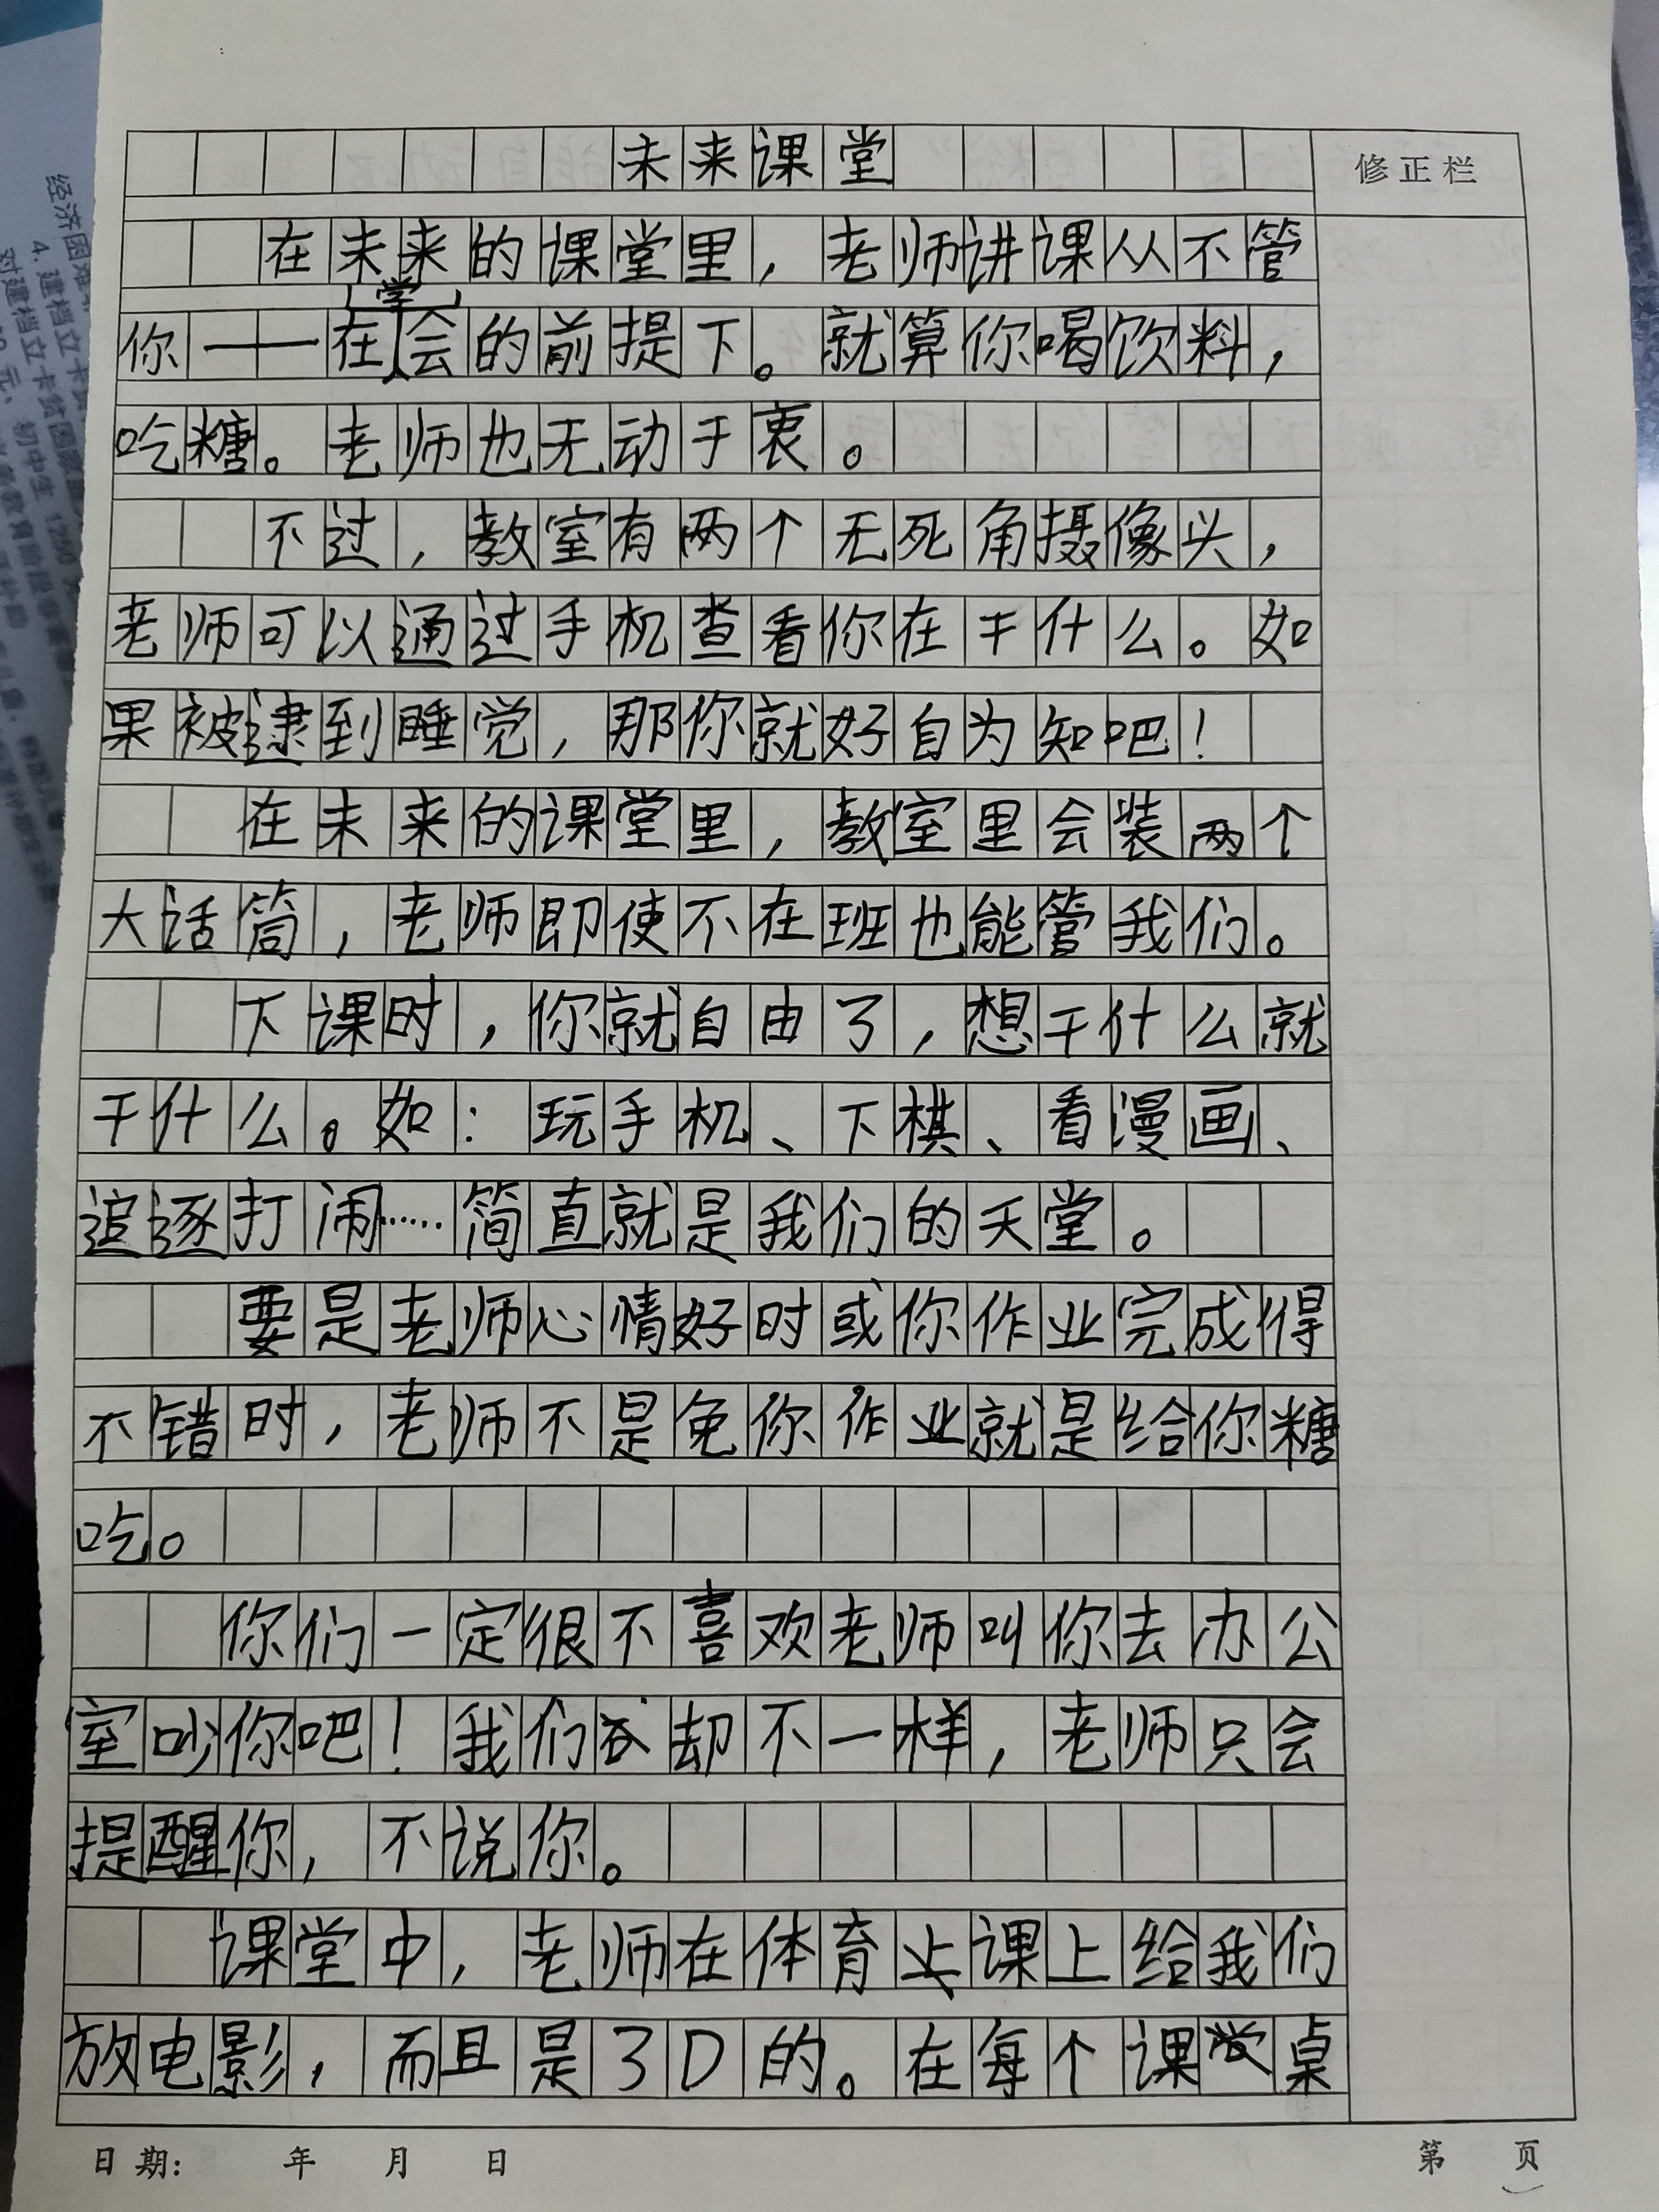 未来课堂
修正栏
在未来的课堂里，老师讲课从不管
你——在学会的前提下。就算你喝饮料，
吃糖。老师也无动于衷。
不过，教室有两个无死角摄像头，
老师可以通过手机查看你在干什么。如
果被逮到睡觉，那你就好自为知吧！
在未来的课堂里，教室里会装两个
大话筒，老师即使不在班也能管我们。
下课时，你就自由了，想干什么就
干什么。如：玩手机、下棋、看漫画、
追逐打闹……简直就是我们的天堂。
要是老师心情好时或你作业完成得
不错时，老师不是免你作业就是给你糖
吃。
你们一定很不喜欢老师叫你去办公
室吵你吧！我们却不一样，老师只会
提醒你，不说你。
课堂中，老师在体育课上给我们
放电影，而且是3D的。在每个课桌
日期： 年 月 日
第 页